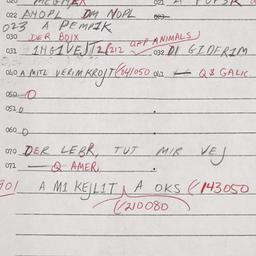 022 AHOPL DM NOPL
023 A PEMPIK
030 DER BOIX
031 1HGIVEJT 2/212 QAP ANIMALS 032 DI GIDERIM
040 A MITL VERIMKROJT (/041050 041 — Q8 GARIC
050 O
051 0
060 0
070 DER LEBR, TUT MIR VEJ
071 — Q AMER.
901 A M1 KEJL1T A OKS (/143050
(/210080